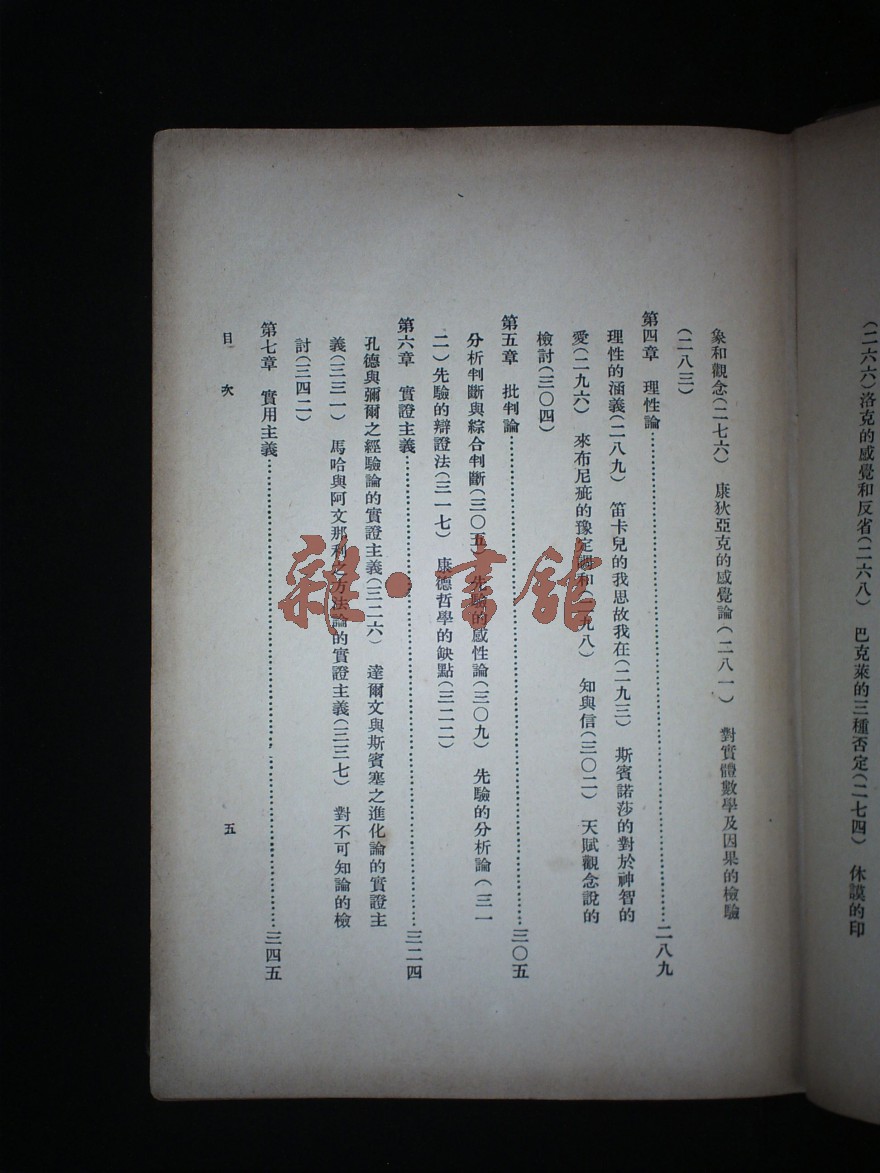 (二六六)洛克的感覺和反省(二六八) 巴克萊的三種否定(二七四) 休謨的印
象和觀念(二七六) 康狄亞克的感覺論(二八一) 對實體數學及因果的檢驗
(二八三)
第四章 理性論……二八九
理性的涵義(二八九) 笛卡兒的我思故我在(二九三) 斯賓諾莎的對於神智的
愛(二九六) 來布尼疵的豫定調和(二九八) 知與信(三〇二) 天賦觀念說的
檢討(三〇四)
第五章 批判論……三〇五
分析判斷與綜合判斷(三〇五) 先驗的感性論(三〇九) 先驗的分析論(三一
二)先驗的辯證法(三一七) 康德哲學的缺點(三二二)
第六章 實證主義……三二四
孔德與彌爾之經驗論的實證主義(三二六) 達爾文與斯賓塞之進化論的實證主
義(三三一) 馬哈與阿文那利之方法論的實證主義(三三七) 對不可知論的檢
討(三四二)
第七章 實用主義……三四五
目次 五
雜·書館